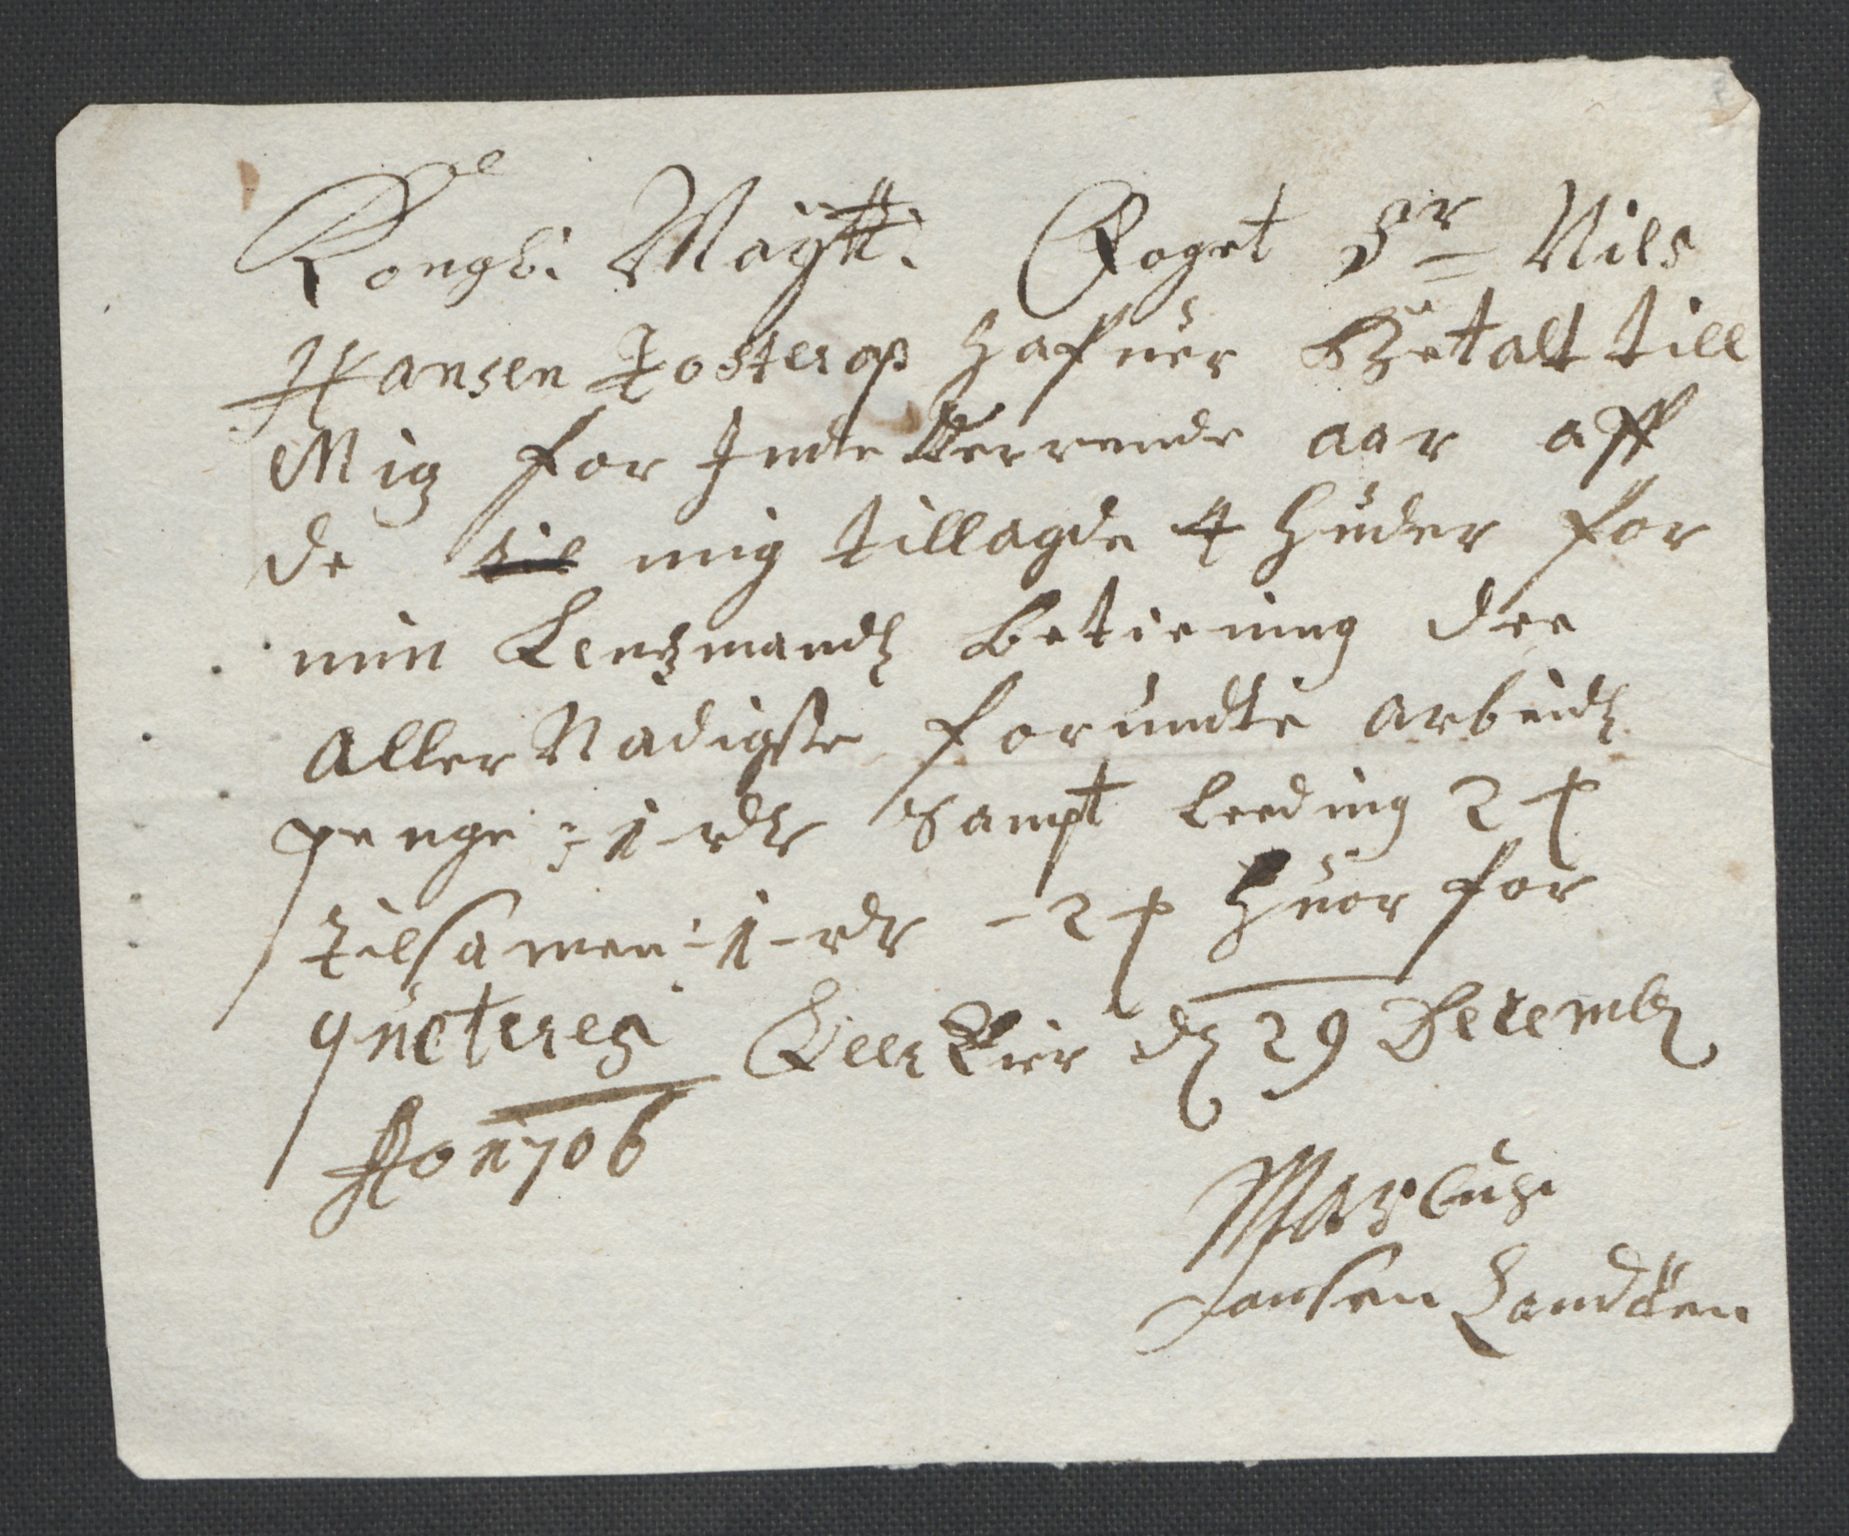 Kongl: Maÿtt: Foget Sr Nils
Hansen Tosterop hafuer Betalt till
Mig for Inde Verrende aar aff
de til mig tillagde 4 huder for
min Lensmandtz betiening dee
Aller Nadigste forundte arbeidtz
penge :/: 1 rdr Sampt Leeding 2 ß
tilsamen :-1- rdr - 2 ß huor for
qúiteres dz 29 Decembz
Ao 1706
Marcús
Jansen Sandöen